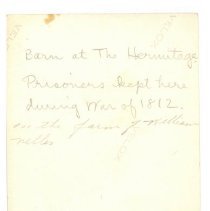 Barn at The Hermitage
Prisoners kept here
during War of 1812.
on the farm of William
Nelles
VELOX
VELOX
VELOX